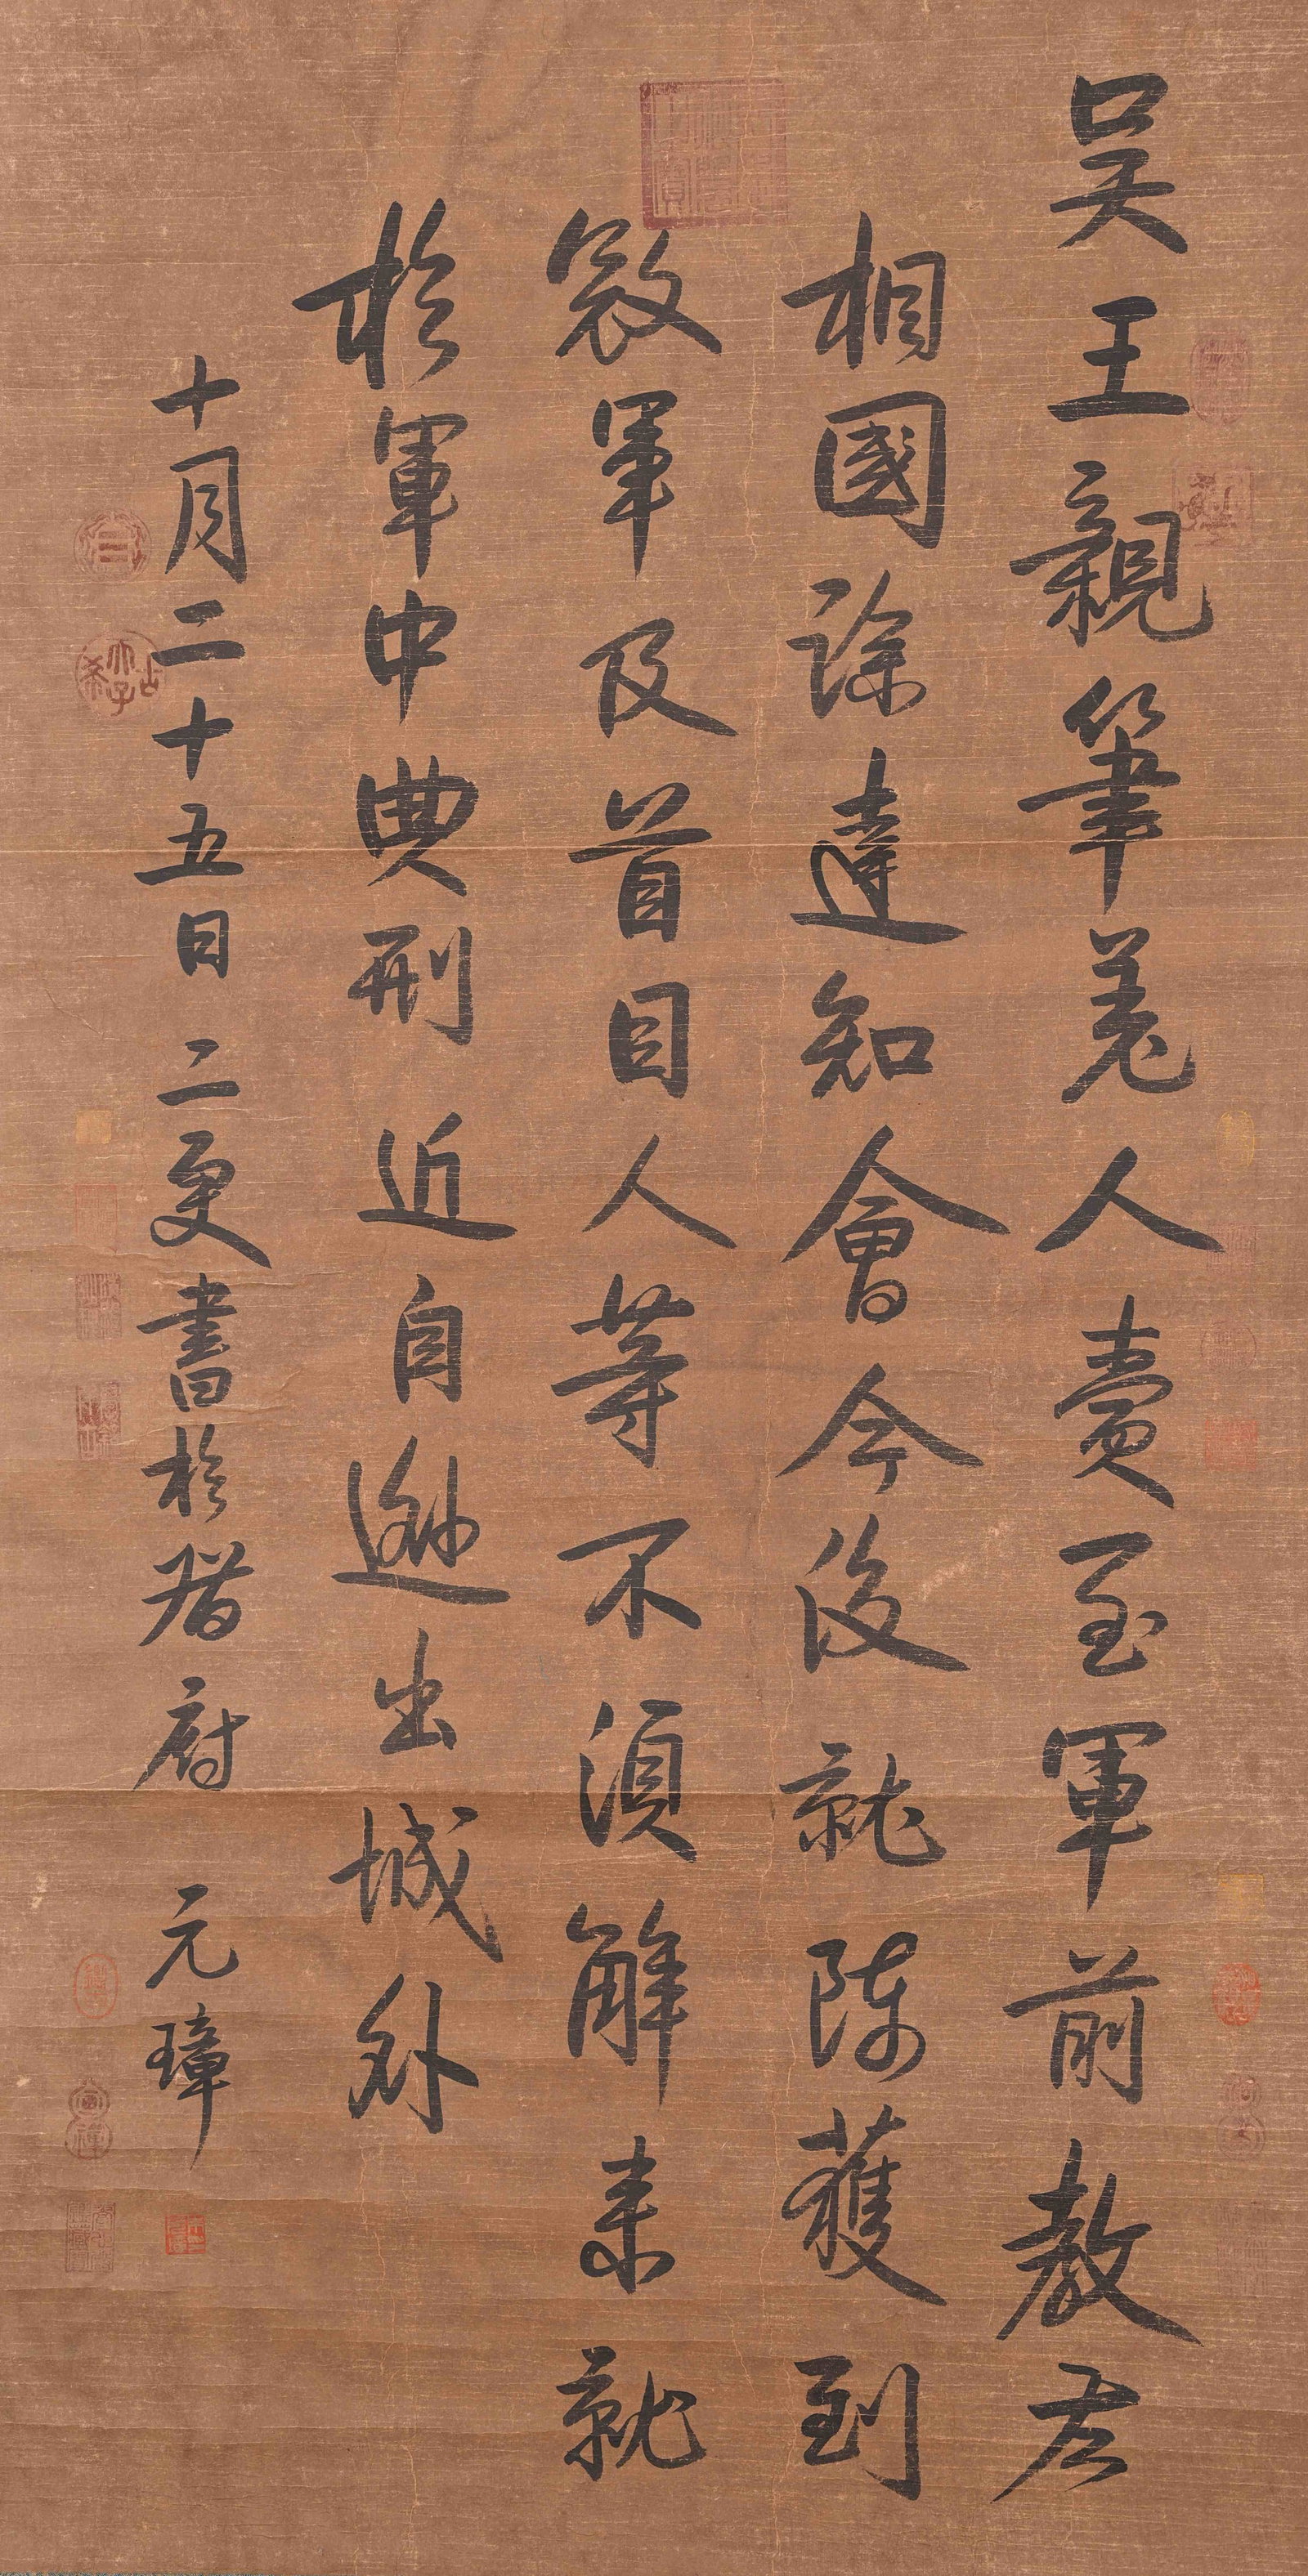 吳王親筆差人賫至軍前教左
相國徐達知會今後就陣獲到
寇軍及首目人等不須解來就
於軍中典刑近自遯出城外
十月二十五日二更書於階府元璋